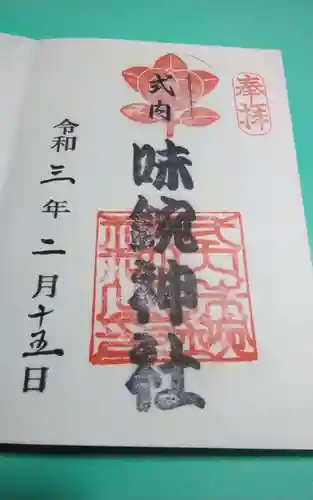 奉拝
式内
味鋺神社
令和三年二月十五日